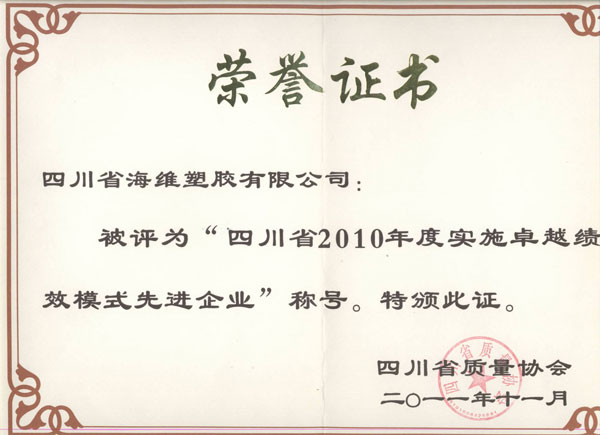 荣誉证书
四川省海维塑胶有限公司：
被评为“四川省2010年度实施卓越绩
效模式先进企业”称号。特颁此证。
四川省质量协会
二〇一一年十一月
四川省质量协会